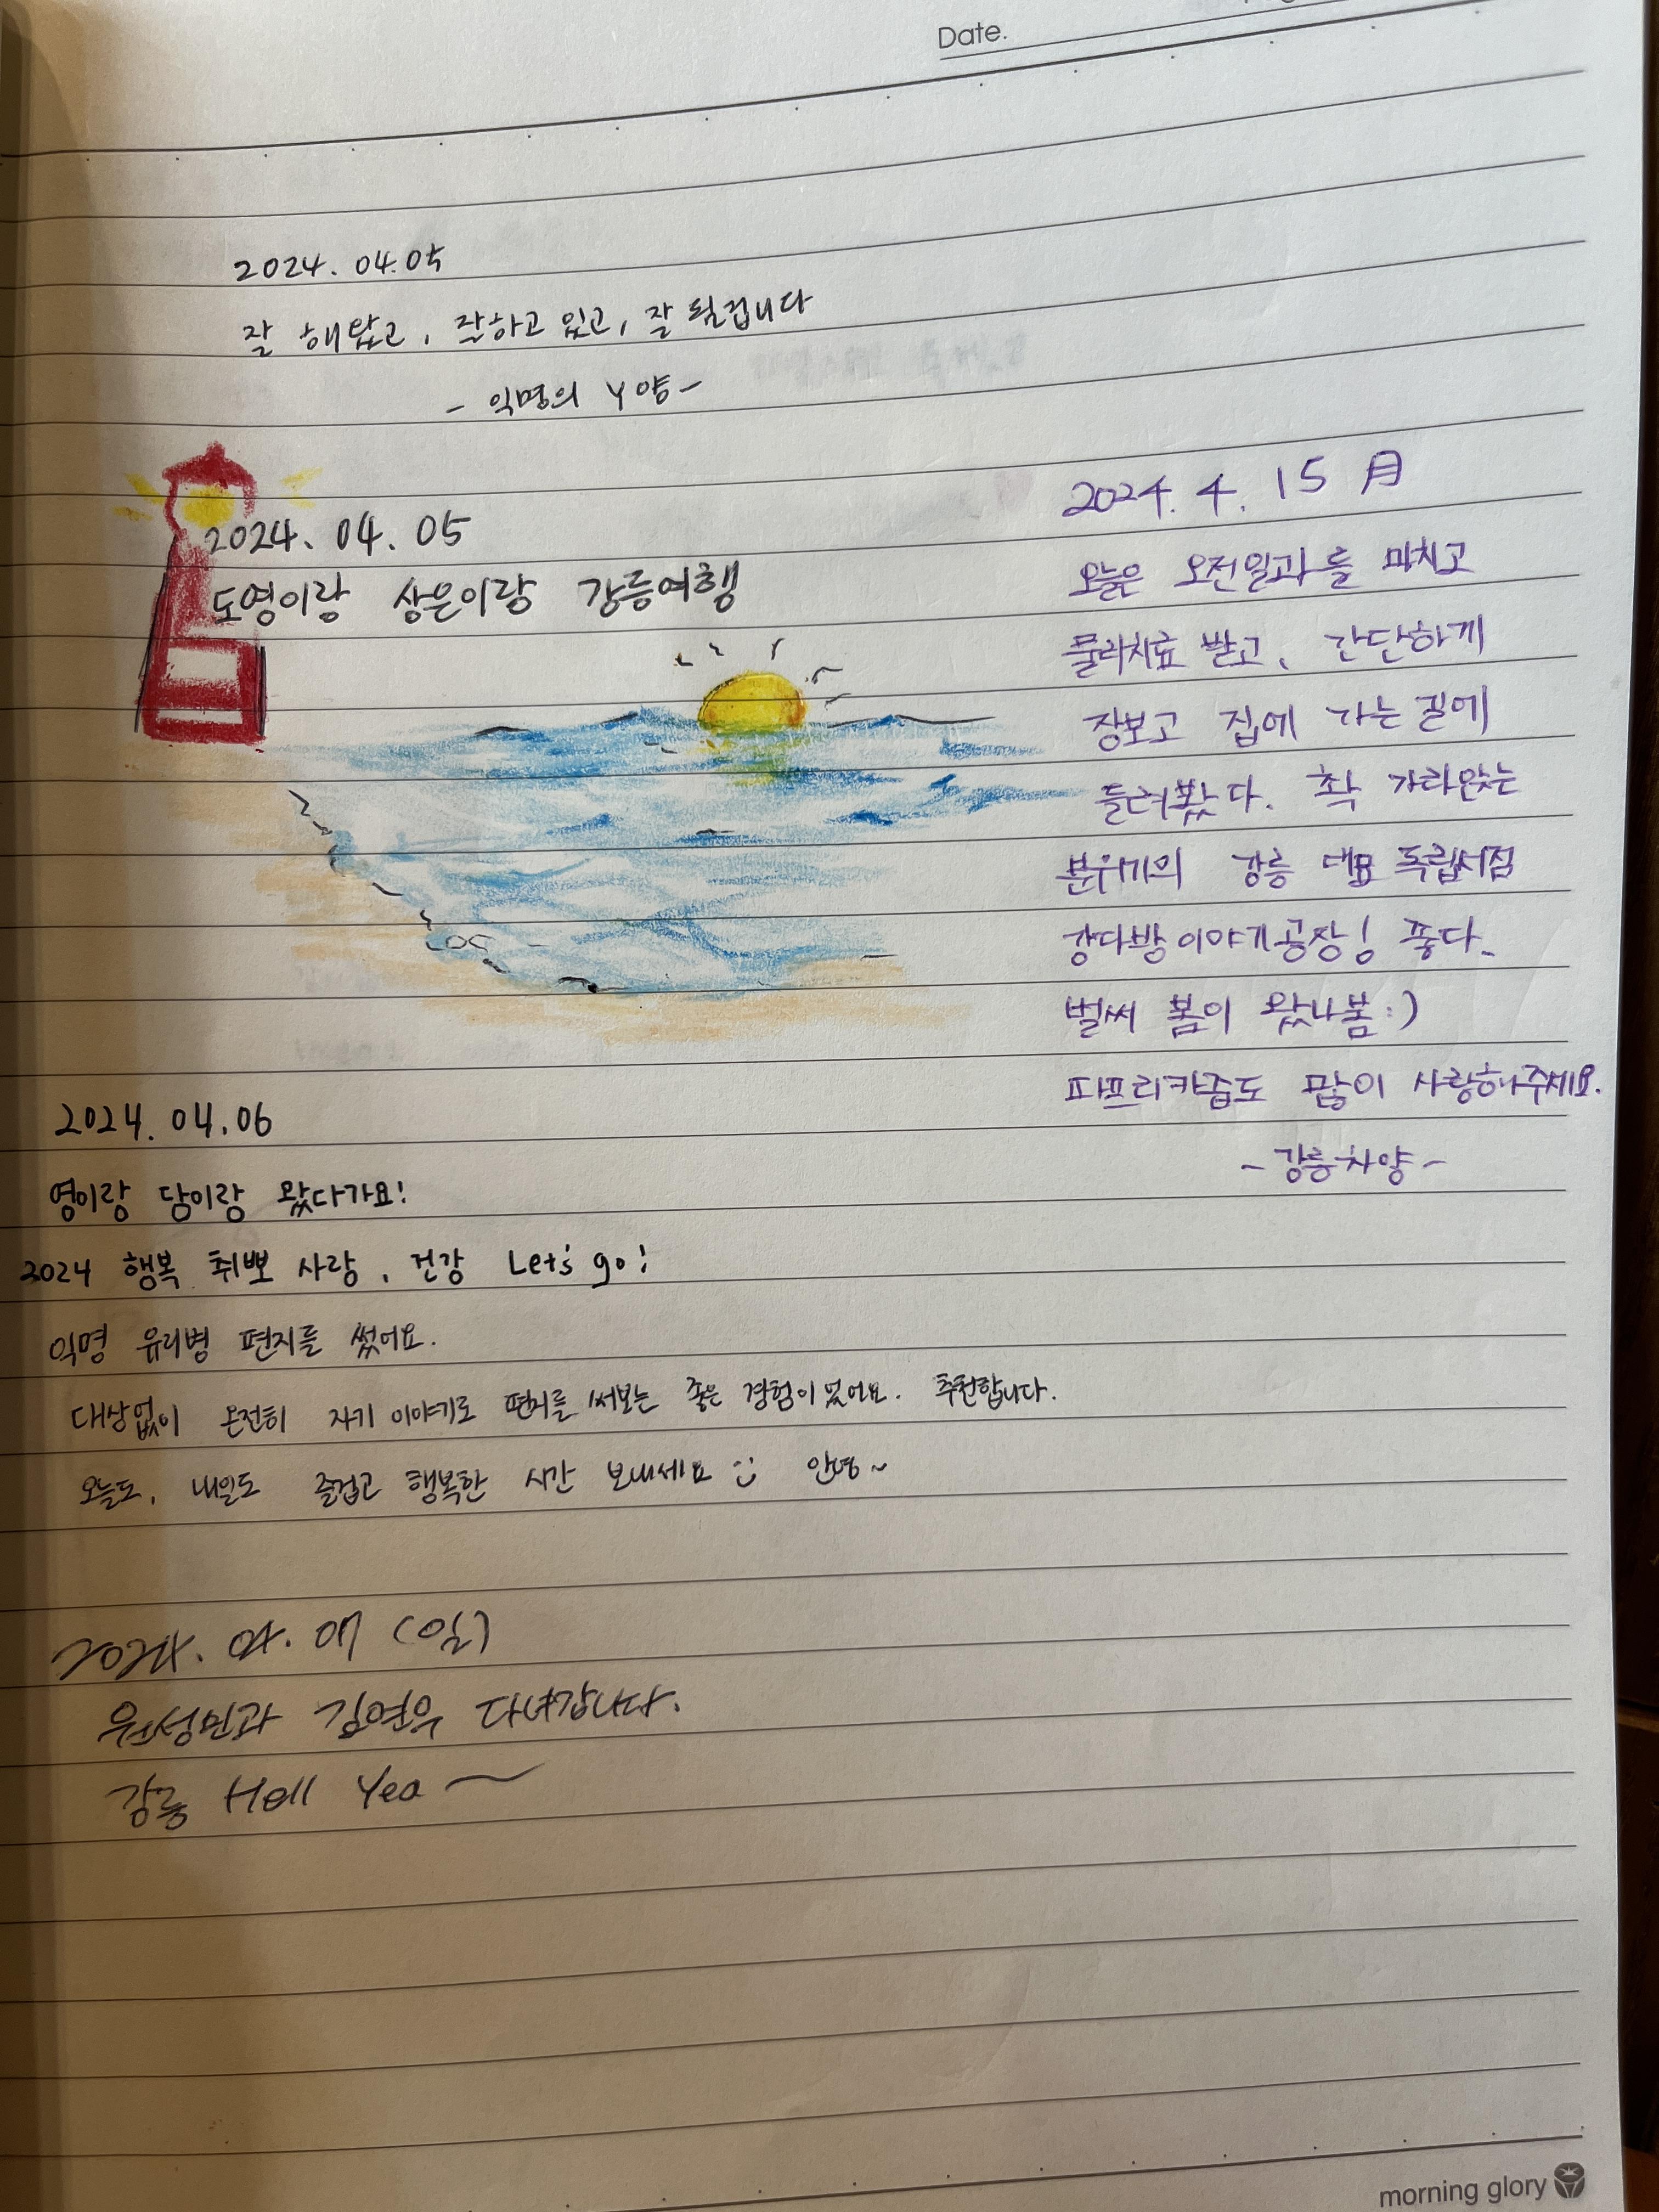 Date.
2024. 04. 05
잘 해왔고, 잘하고 있고, 잘 될겁니다
- 익명의 Y양 -
2024. 04. 05
도영이랑 상은이랑 강릉여행
2024. 4. 15 月
오늘은 오전일과를 마치고
물리치료 받고, 간단하게
장보고 집에 가는 길에
들러봤다. 착 가라앉는
분위기의 강릉 대표 독립서점
강다방이야기공장! 좋다.
벌써 봄이 왔나봄 :)
파프리카즙도 많이 사랑해주세요.
- 강릉차양 -
2024. 04. 06
영이랑 담이랑 왔다가요!
2024 행복 취뽀 사랑, 건강 Let's go!
익명 유리병 편지를 썼어요.
대상없이 온전히 자기 이야기로 편지를 써보는 좋은 경험이었어요. 추천합니다.
오늘도, 내일도 즐겁고 행복한 시간 보내세요 :) 안녕~
2024. 04. 07 (일)
원성민과 김연우 다녀갑니다.
강릉 Hell Yea ~
morning glory